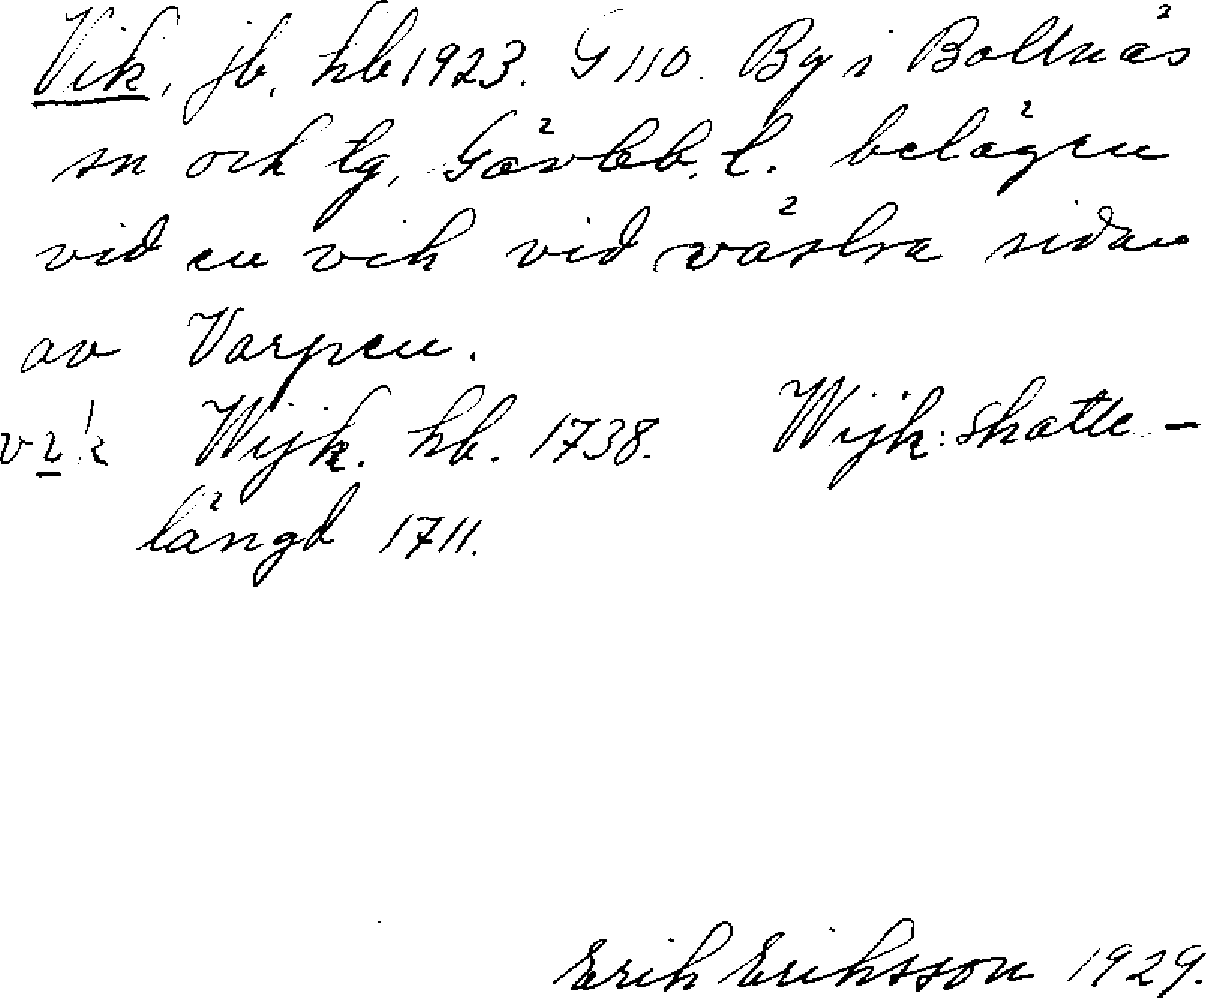 Vik, jb, hb 1923. G 110. By i Bollnäs
sn och tg, Gävleb. l. belägen
vid en vik vid västra sidan
av Varpen.
Wijk. hb. 1738. Wijk: skatte-
längd 1711.
Erik Eriksson 1929.